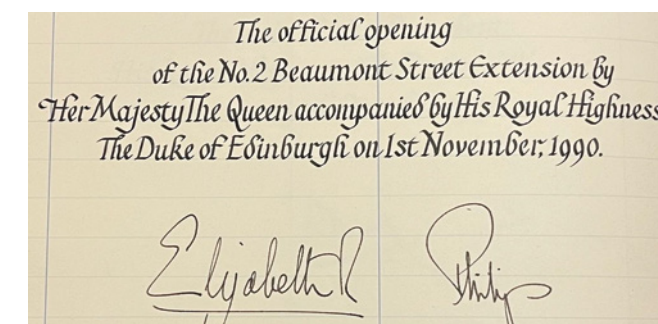 The official opening
of the No. 2 Beaumont Street Extension by
Her Majesty The Queen accompanied by His Royal Highness
The Duke of Edinburgh on 1st November, 1990.
Elizabeth R Philip